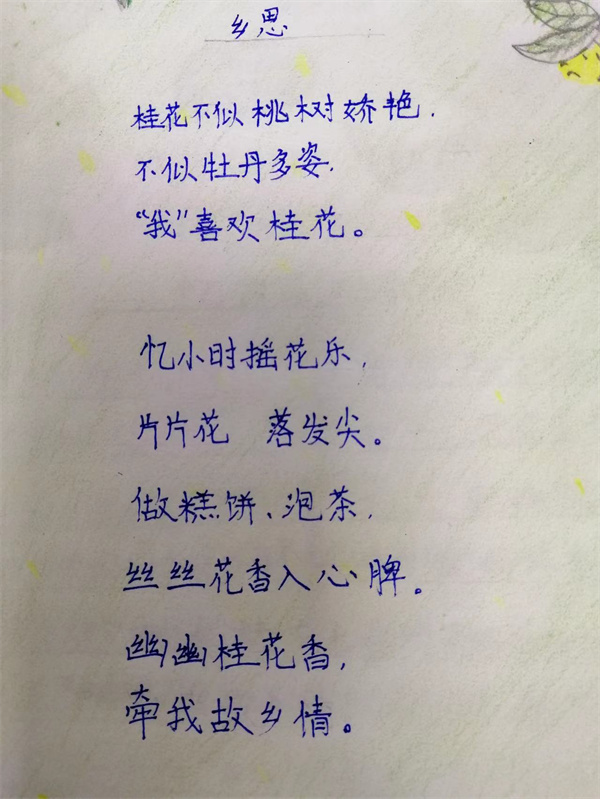 乡思
桂花不似桃树娇艳,
不似牡丹多姿,
“我”喜欢桂花。
忆小时摇花乐,
片片花 落发尖。
做糕饼、泡茶,
丝丝花香入心脾。
幽幽桂花香,
牵我故乡情。